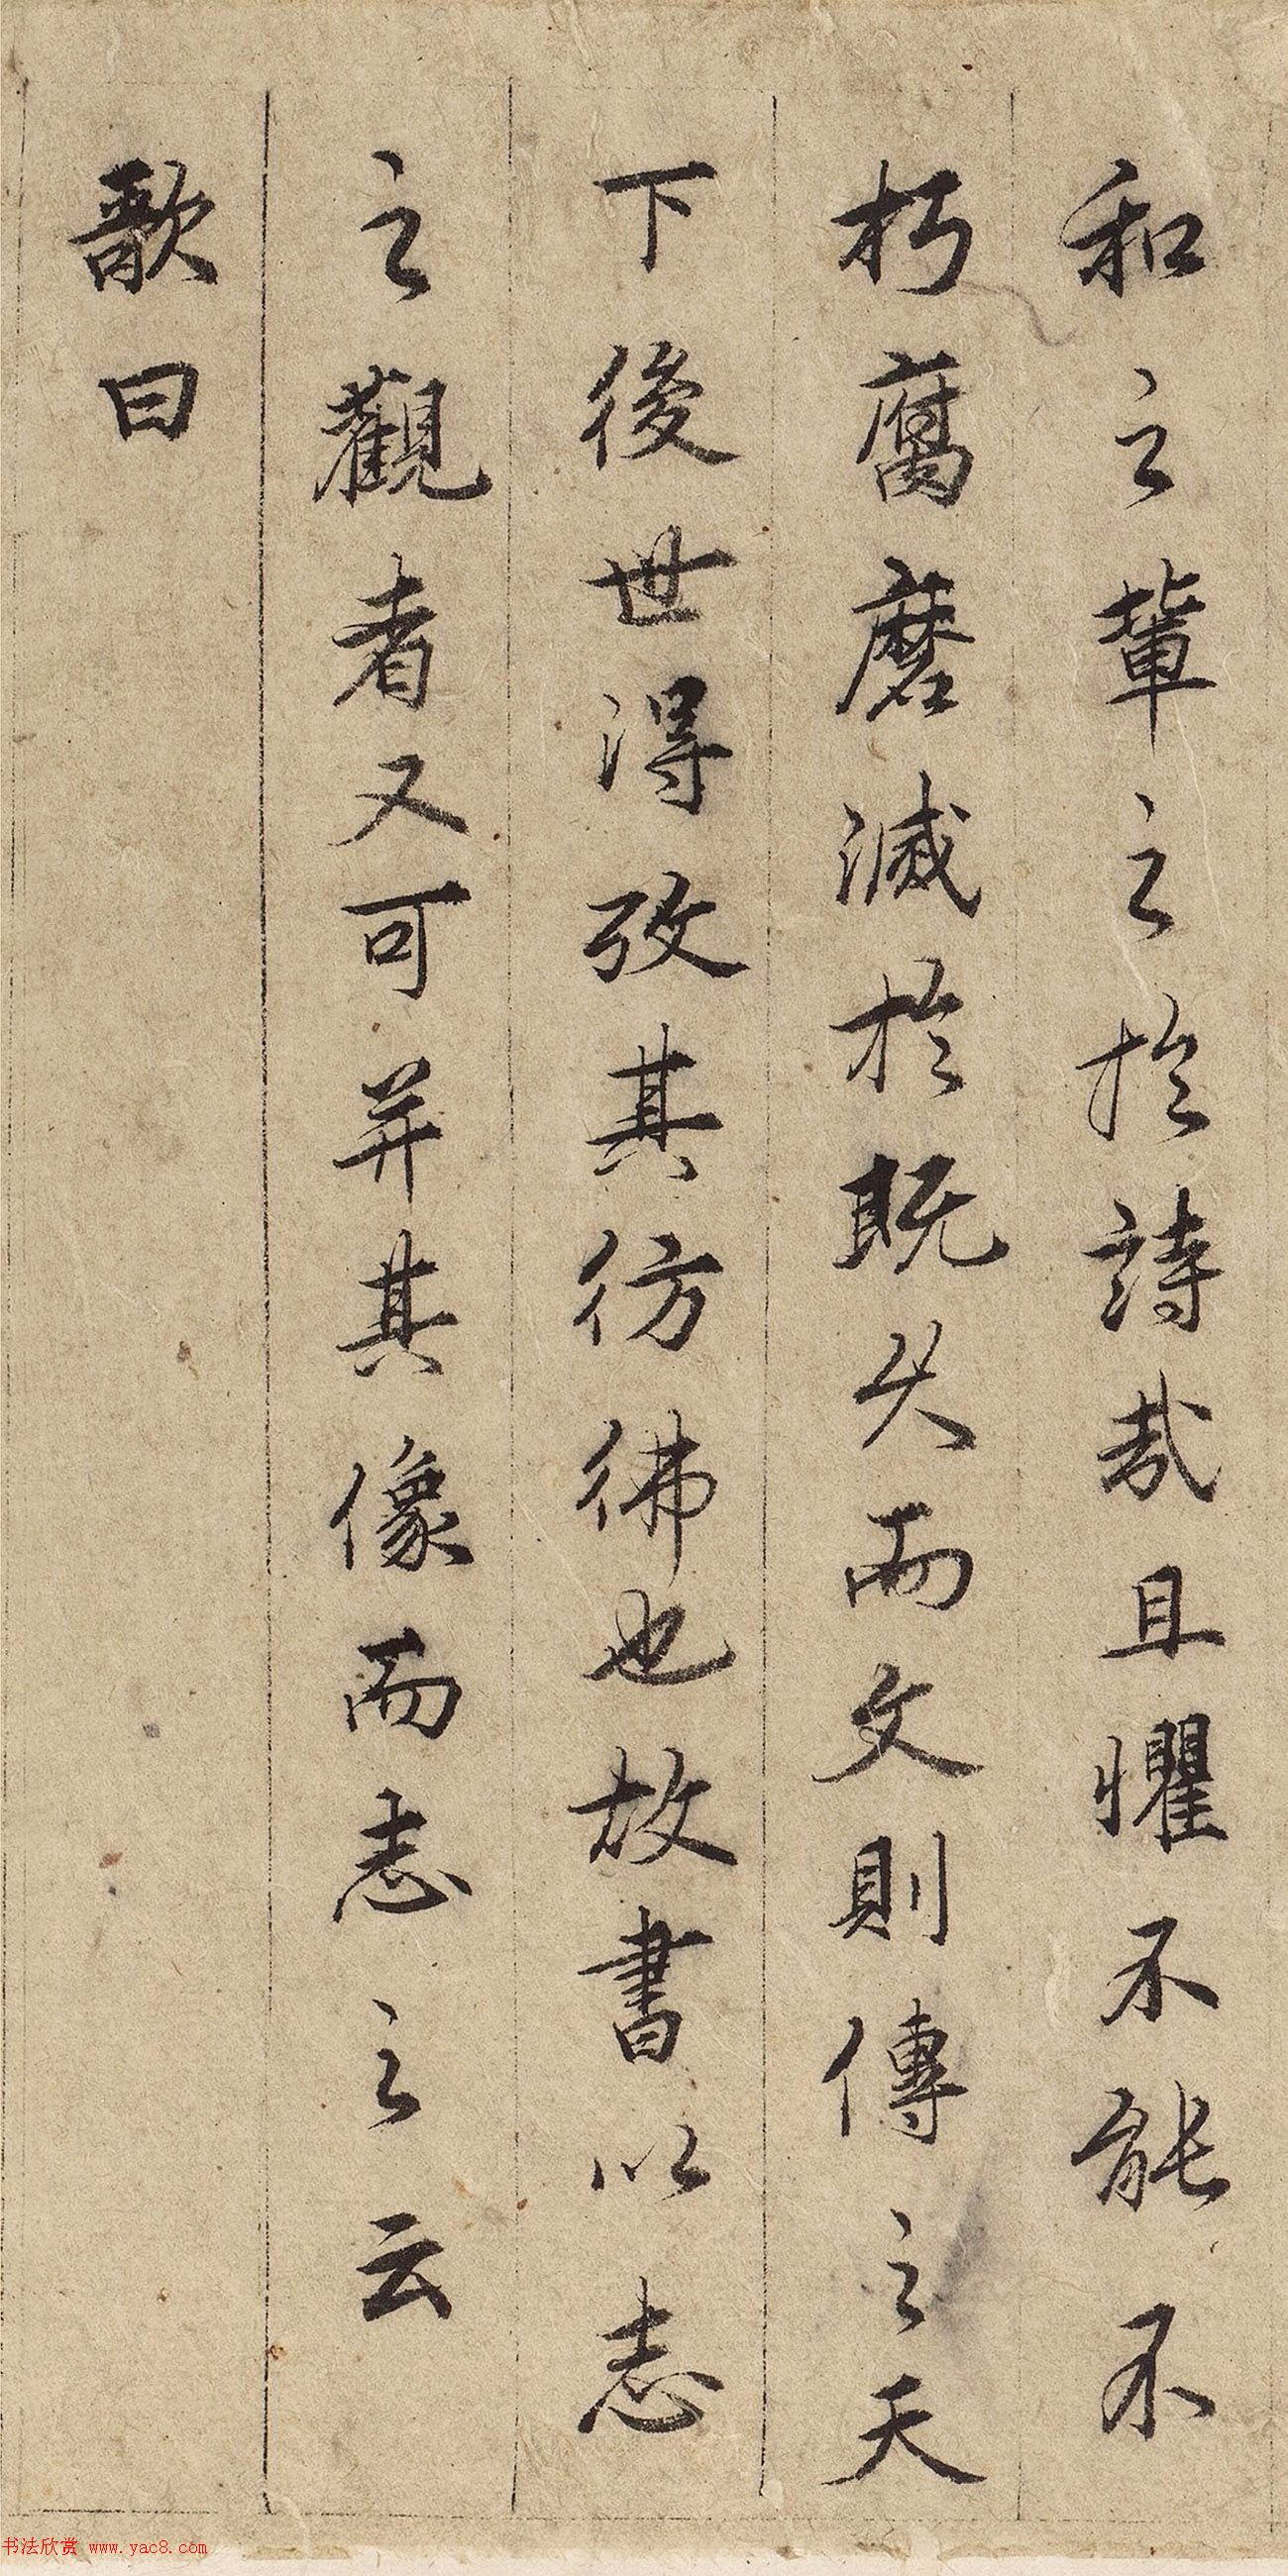 和之輩之於詩哉且懼不能不
朽腐磨滅於既失而文則傳之天
下後世得攷其彷彿也故書以志
之觀者又可并其像而志之云
歌曰
书法欣赏 www.yac8.com